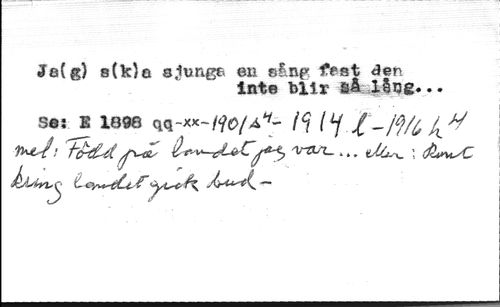 Ja(g) s(k)a sjunga en sång fast den
inte blir så lång...
Se: E 1898 qq-xx-1901 s⁴- 1914 l - 1916 h⁴
mel: Född på landet jag var... eller: Runt
kring landet gick bud -